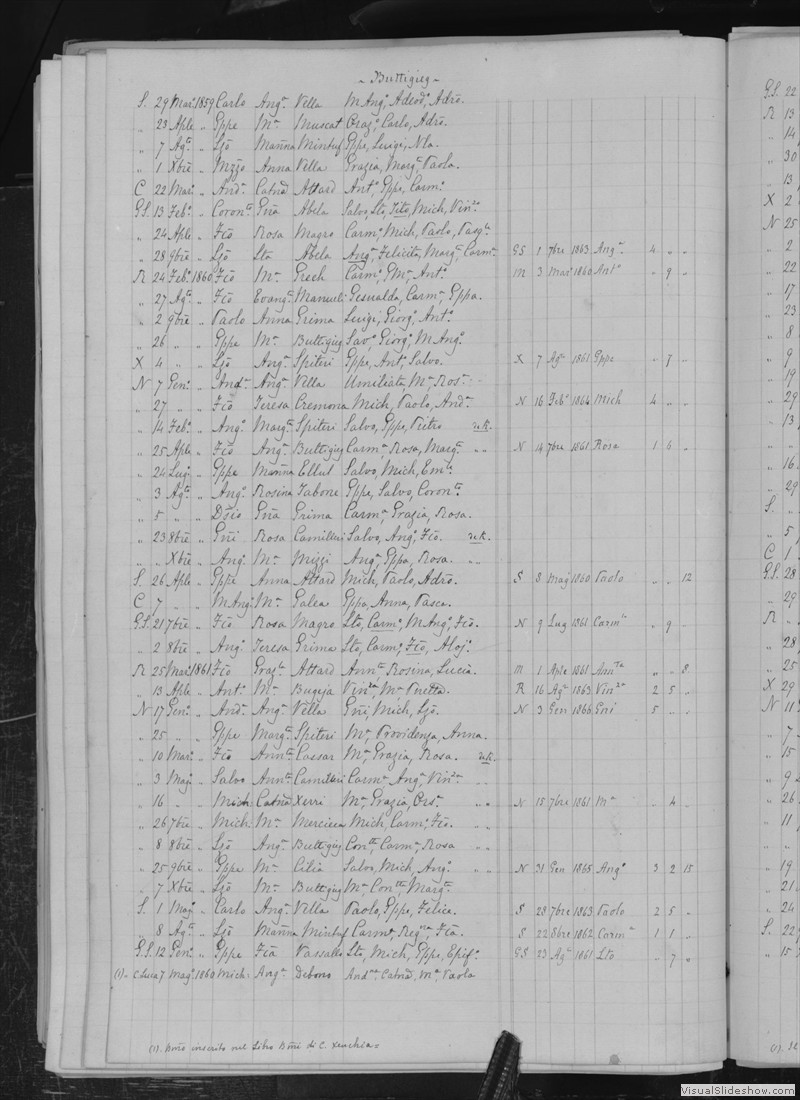 ~ Buttigieg ~
S. 29 Mar: 1859 Carlo Angª Vella M Angº, Adeod, Adrō.
„ 23 Aple „ Gppe Mª Muscat Grazª, Carlo, Adrō.
„ 7 Agº „ Ljō Marīna Mintuf Gppe, Luigi, Nla.
„ 1 Xbre „ Nzzō Anna Vella Grazia, Margª, Paola.
C 22 Mar: „ Andª Catnā Attard Antº, Gppe, Carmª
G.S. 13 Febº „ Coronto Gña Abela Salvo, Sto, Tito, Mich, Vinzº
„ 24 Aple „ Fcō Rosa Magro Carmº, Mich, Paolo, Pasqº
„ 28 9bre „ Ljō Sta Abela Angª, Felicita, Margª, Carmª GS 1 7bre 1863 Angª 4 „ „
R 24 Febº 1860 Fcō Mª Grech Carmº, GMª, Antº M 3 Mar: 1860 Antº „ 9 „
„ 27 Agº „ Fcō Evangª Manueli Gesualda, Carmª, Gppa.
„ 2 9bre „ Paolo Anna Grima Luigi, Giorgº, Antº
„ 26 „ „ Gppe Mª Buttigieg Savº, Giorgº, M Angº
X 4 „ „ Ljō Angª Spiteri Gppe, Antº, Salvo. X 7 Agº 1861 Gppe „ 7 „
N 7 Genº „ Andª Angª Vella Umiliata, Mª Rosª
„ 27 „ „ Fcō Teresa Cremona Mich, Paolo, Andª N 16 Febº 1864 Mich 4 „ „
„ 14 Febº „ Angº Margª Spiteri Salvo, Gppe, Pietro
„ 25 Aple „ Fcō Angª Buttigieg Carmª, Rosa, Margª „ „ N 14 7bre 1861 Rosa 1 6 „
„ 24 Lugº „ Gppe Marīna Ellul Salvo, Mich, Emª
„ 3 Agº „ Angº Rosina Tabone Gppe, Salvo, Coronto
„ 5 „ „ Gña Grima Carmª, Grazia, Rosa.
„ 23 8bre „ Gñi Rosa Camilleri Salvo, Angº, Fcō.
„ „ Xbre „ Angº Mª Mizzi Angª, Gppa, Rosa. „ „
S. 26 Aple „ Gppe Anna Attard Mich, Paolo, Adrō. S 8 Magº 1860 Paolo „ „ 12
C 7 „ „ M Angº Mª Galea Gppa, Anna, Pasca.
G.S. 21 7bre „ Fcō Rosa Magro Sto, Carmº, M Angº, Fcō. N 9 Lug 1861 Carmº „ 9 „
„ 2 8bre „ Angº Teresa Grima Sto, Carmº, Fcō, Aloj:
R 25 Mar: 1861 Fcō Grazª Attard Annta, Rosina, Lucia. M 1 Aple 1861 Annta „ „ 8
„ 13 Aple „ Antº Mª Bugeja Vinza, Mª, Pnetta. R 16 Agº 1863 Vinza 2 5 „
N 17 Genº „ Andª Angª Vella Gñi, Mich, Ljō. N 3 Gen 1866 Gñi 5 „ „
„ 25 „ „ Gppe Margª Spiteri Mª, Providenza, Anna.
„ 10 Mar: „ Fcō Annta Cassar Mª, Grazia, Rosa.
„ 3 Magº „ Salvo Annta Camilleri Carmª, Angª, Vinza
16 „ „ Mich Catnā Xerri Mª, Grazia, „ „ N 15 7bre 1861 Mª „ 4 „
„ 26 7bre „ Mich Mª Mercieca Mich, Carmº, Fcō. „ „
„ 8 8bre „ Ljō Angª Buttigieg Contta, Carmª, Rosa „ „
„ 25 9bre „ Gppe Mª Cilia Salvo, Mich, Angº „ „ N 31 Gen 1865 Angº 3 2 15
„ 7 Xbre „ Ljō Mª Buttigieg Mª, Contta, Margª
S. 1 Magº „ Carlo Angª Vella Paolo, Gppe, Felice. S 28 7bre 1863 Paolo 2 5 „
„ 8 Agº „ Ljō Marīna Mintuf Carmª, Regna, Fca. S 22 8bre 1862 Carmª 1 1 „
G.S. 12 Genº „ Gppe Fca Vassallo Sto, Mich, Gppe, Epifº GS 23 Agº 1861 Sto „ 7 „
(1). C Luca 7 Magº 1860 Mich: Angª Debono Andª, Catnā, Mª Paola
(1). inscritto nel Libro di C. Xeuchia
G.S. 22
R 13
„ 14
„ 30
„ 13
X 2
N 25
„ 2
„ 22
„ 17
„ 23
„ 8
„ 9
„ 19
„ 29
„ 13
„ „
„ 16
„ 29
S. „
„ 5
C 1
G.S. 28
„ 29
R „
„ 28
„ 25
X 29
N 11
„ 7
„ 15
„ 9
„ 26
„ 11
„ 19
„ 21
„ 24
S. 22
„ 15
(1).
VisualSlideshow.com